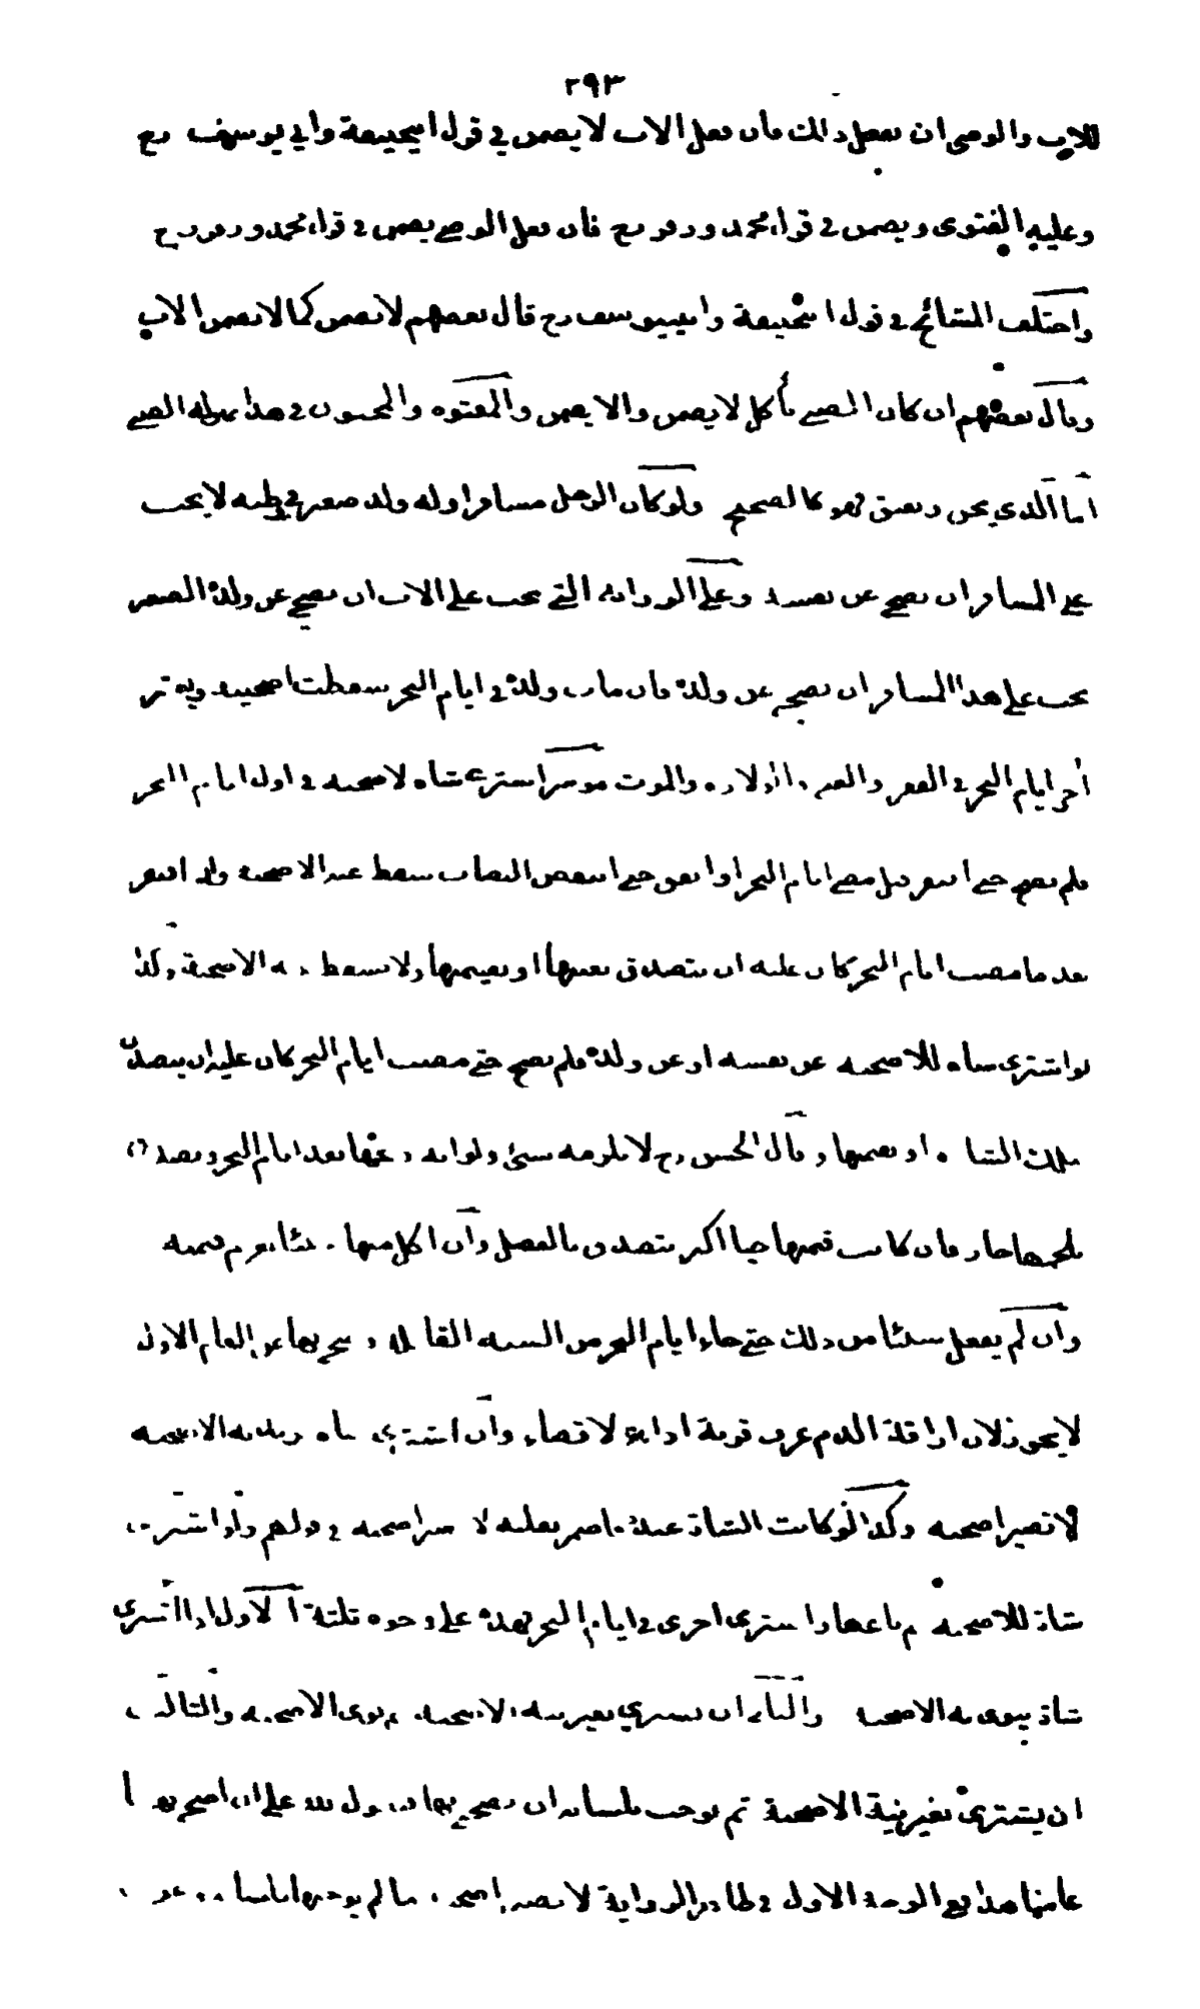 ٢٩٣
للاب والوصى ان يفعل ذلك فان فعل الاب لا يضمن في قول ابيحنيفة وابي يوسف رح
وعليه الفتوى ويضمن في قول محمد وزفر رح فان فعل الوصي يضمن في قول محمد وزفر رح
واختلف المشائخ في قول ابيحنيفة وابييوسف رح قال بعضهم لا يضمن كما لا يضمن الاب
وقال بعضهم ان كان الصبي يأكل لا يضمن والا يضمن والمعتوه والمجنون في هذا بمنزلة الصبي
اما الذي يجن ويفيق فهو كالصحيح ولو كان الرجل مسافرا وله ولد صغير في وطنه لا يجب
على المسافر ان يضحي عن نفسه وعلى الرواية التي يجب على الاب ان يضحي عن ولده الصغير
يجب على هذا المسافر ان يضحي عن ولده فان مات ولده في ايام النحر سقطت اضحيته ويعتبر
أخر ايام النحر في الفقر والغنى والولادة والموت موسر اشترى شاة لاضحيته في اول ايام النحر
فلم يضح حتى افتقر قبل مضي ايام النحر او انفق حتى انتقص النصاب سقط عنه الاضحية وان افتقر
بعد ما مضت ايام النحر كان عليه ان يتصدق بعينها او بقيمتها ولا يسقط عنه الاضحية وكذا
لو اشترى شاة للاضحية عن نفسه او عن ولده فلم يضح حتى مضت ايام النحر كان عليه ان يتصدق
بتلك الشاة او بقيمتها وقال الحسن رح لا يلزمه شئ ولو انه ذبحها بعد ايام النحر وتصدق
بلحمها جاز فان كانت قيمتها حيا اكثر يتصدق بالفضل وان اكل منها شيئا يغرم قيمته
وان لم يفعل شيئا من ذلك حتى جاء ايام النحر من السنة القابلة وضحى بها عن العام الاول
لا يجوز لان اراقة الدم عرف قربة اداء لا قضاء وان اشترى شاة يريد به الاضحية
لا تصير اضحية وكذا لو كانت الشاة عنده فاضمر بقلبه لا تصير اضحية في قولهم ولو اشترى
شاة للاضحية ثم باعها واشترى اخرى في ايام النحر فهذه على وجوه ثلثة الاول اذا اشترى
شاة ينوى به الاضحية والثاني ان يشتري بغير نية الاضحية ثم نوى الاضحية والثالث
ان يشترى بغير نية الاضحية ثم يوجب بلسانه ان يضحي بها فيقول لله علي ان اضحي بها
عامنا هذا ففي الوجه الاول في ظاهر الرواية لا تصير اضحية ما لم يوجبها بلسانه